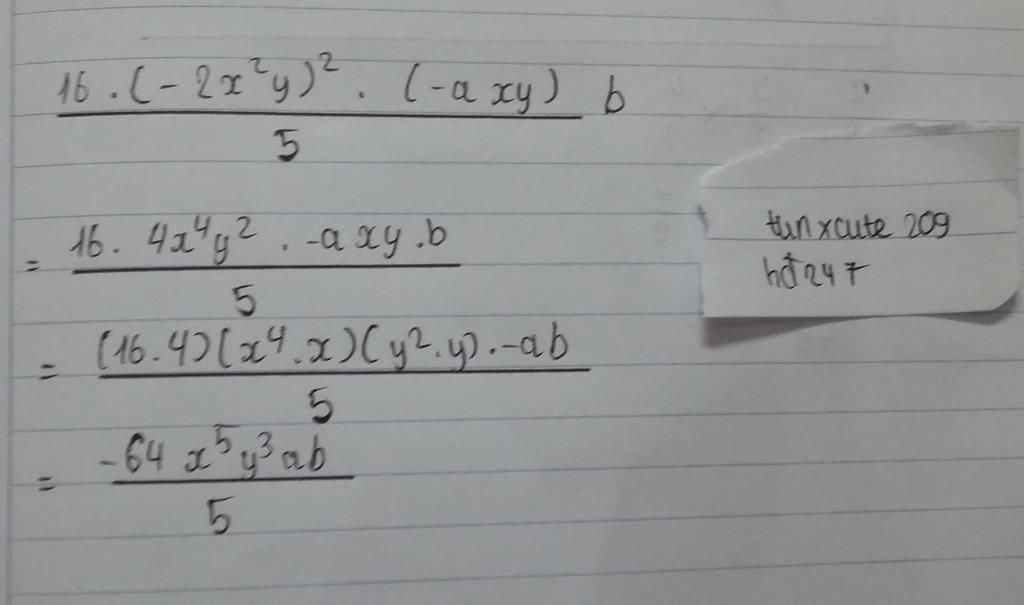 16 . (- 2x²y)² . (-a xy) b
5
= 16. 4x⁴y² . -a xy .b
5
= (16.4)(x⁴.x)(y².y).-ab
5
= -64 x⁵y³ab
5
tunxcute 209
hđ247